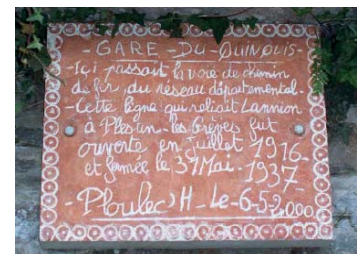 - GARE - DU - QUINQUIS -
- Içi passait la voie de chemin
de fer du réseau départemental -
- Cette ligne qui reliait Lannion
à Plestin - les Grèves fut
ouverte en juillet 1916 -
et fermée le 31 Mai - 1937 -
- Ploulec'H - Le - 6 - 5 - 2.000